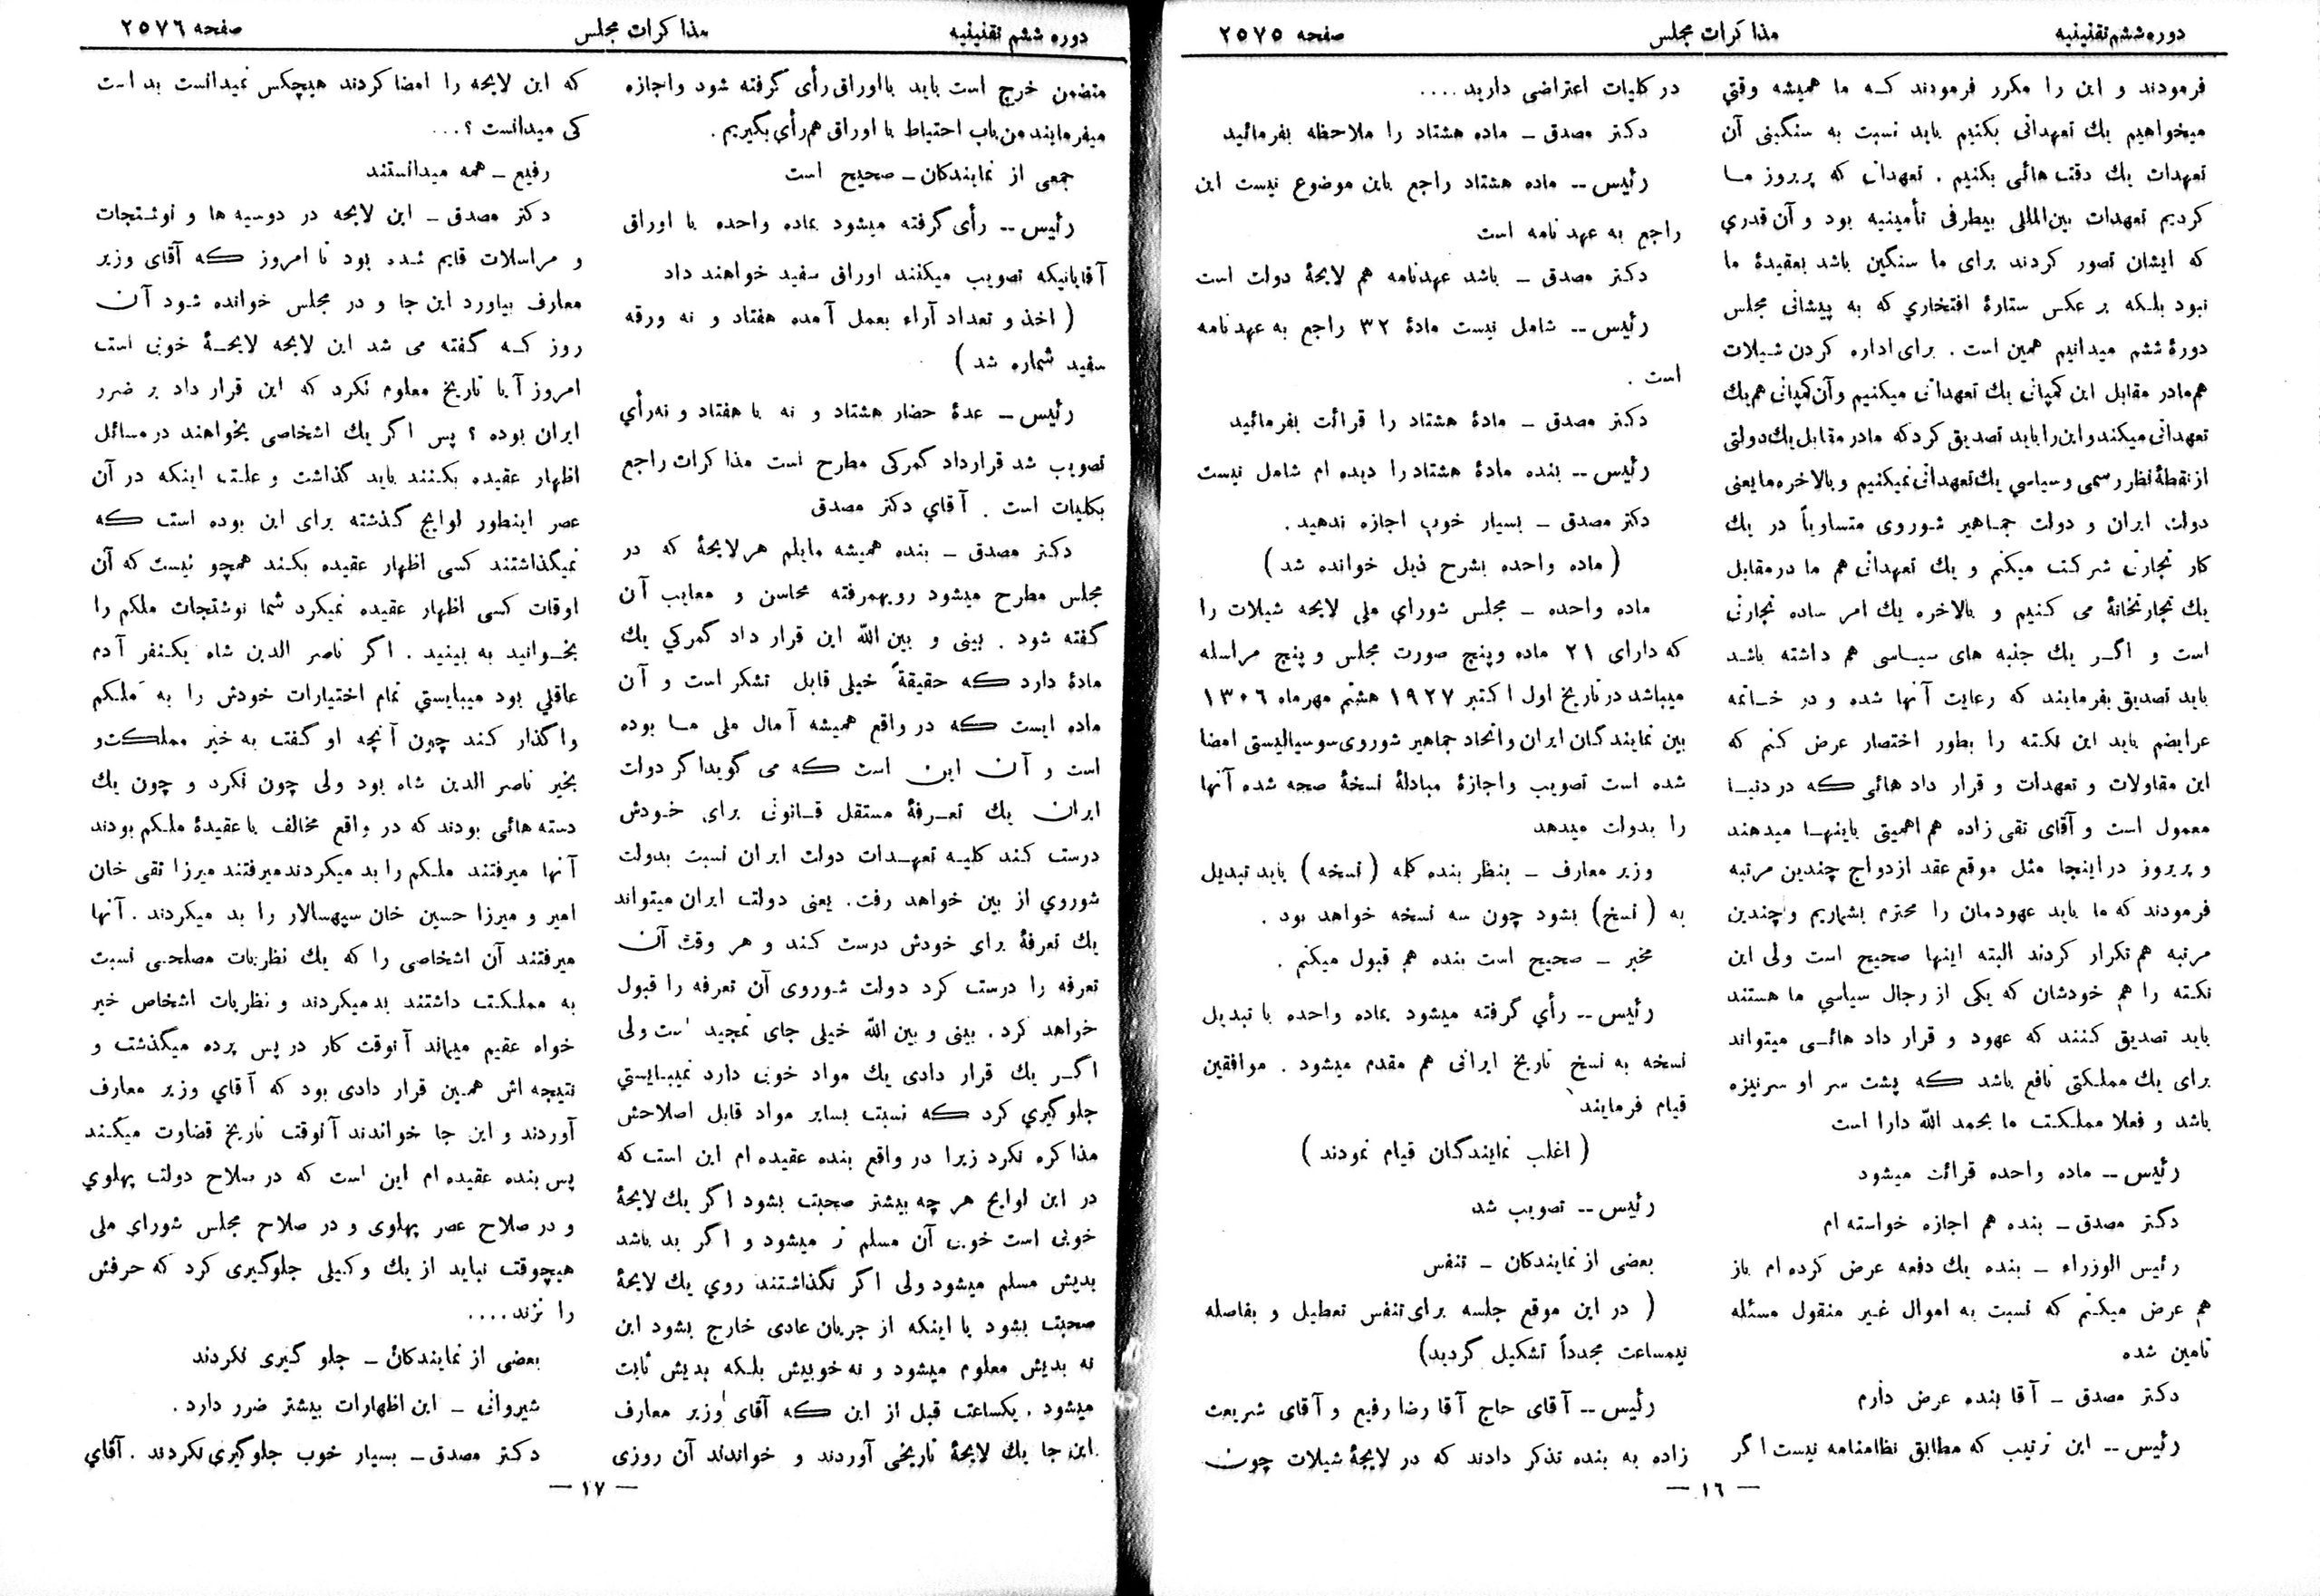 دوره ششم تقنینیه
مذاکرات مجلس
صفحه ۲۵۷۵
فرمودند و این را مکرر فرمودند که ما همیشه وقتی
میخواهیم یك تعهداتی بکنیم باید نسبت به سنگینی آن
تعهدات یك دقت هائی بکنیم . تعهداتی که پریروز ما
کردیم تعهدات بین‌المللی بیطرفی تأمینیه بود و آن قدری
که ایشان تصور کردند برای ما سنگین باشد بعقیدهٔ ما
نبود بلکه بر عکس ستارهٔ افتخاري که به پیشانی مجلس
دورهٔ ششم میدانیم همین است . برای اداره کردن شیلات
هم مادر مقابل این کمپانی یك تعهداتی میکنیم و آن کمپانی هم یك
تعهداتی میکند و این را باید تصدیق کرد که مادر مقابل یك دولتی
از نقطهٔ نظر رسمی و سیاسي یك تعهداتی نمیکنیم و بالاخره ما یعنی
دولت ایران و دولت جماهیر شوروی متساویاً در یك
کار تجارتی شرکت میکنم و یك تعهداتی هم ما در مقابل
یك تجارتخانهٔ می کنیم و بالاخره یك امر ساده تجارتی
است و اگر یك جنبه های سیاسی هم داشته باشد
باید تصدیق بفرمایند که رعایت آنها شده و در خاتمه
عرایضم باید این نکته را بطور اختصار عرض کنم که
این مقاولات و تعهدات و قرار داد هائی که در دنیا
معمول است و آقای تقی زاده هم اهمیتی باینها میدهند
و پریروز در اینجا مثل موقع عقد ازدواج چندین مرتبه
فرمودند که ما باید عهودمان را محترم بشماریم و چندین
مرتبه هم تکرار کردند البته اینها صحیح است ولی این
نکته را هم خودشان که یکی از رجال سیاسي ما هستند
باید تصدیق کنند که عهود و قرار داد هائی میتواند
برای یك مملکتی نافع باشد که پشت سر او سرنیزه
باشد و فعلا مملکت ما بحمد الله دارا است
رئیس -- ماده واحده قرائت میشود
دکتر مصدق ـ بنده هم اجازه خواسته ام
رئیس الوزراء ـ بنده یك دفعه عرض کرده ام باز
هم عرض میکنم که نسبت به اموال غیر منقول مسئله
تامین شده
دکتر مصدق ـ آقا بنده عرض دارم
رئیس -- این ترتیب که مطابق نظامنامه نیست اگر
در کلیات اعتراضی دارید ....
دکتر مصدق ـ ماده هشتاد را ملاحظه بفرمائید
رئیس -- ماده هشتاد راجع باین موضوع نیست این
راجع به عهد نامه است
دکتر مصدق ـ باشد عهدنامه هم لایحهٔ دولت است
رئیس -- شامل نیست مادهٔ ۳۲ راجع به عهد نامه
است .
دکتر مصدق ـ مادهٔ هشتاد را قرائت بفرمائید
رئیس -- بنده مادهٔ هشتاد را دیده ام شامل نیست
دکتر مصدق ـ بسیار خوب اجازه ندهید.
( ماده واحده بشرح ذیل خوانده شد )
ماده واحده ـ مجلس شورای ملي لایحه شیلات را
که دارای ۲۱ ماده و پنج صورت مجلس و پنج مراسله
میباشد در تاریخ اول اکتبر ۱۹۲۷ هشتم مهرماه ۱۳۰۶
بین نمایندگان ایران و اتحاد جماهیر شوروی سوسیالیستی امضا
شده است تصویب و اجازهٔ مبادلهٔ نسخهٔ صحه شده آنها
را بدولت میدهد
وزیر معارف ـ بنظر بنده کلمه ( نسخه ) باید تبدیل
به ( نسخ ) بشود چون سه نسخه خواهد بود .
مخبر ـ صحیح است بنده هم قبول میکنم .
رئیس -- رأي گرفته میشود بماده واحده با تبدیل
نسخه به نسخ تاریخ ایرانی هم مقدم میشود . موافقین
قیام فرمایند
( اغلب نمایندگان قیام نمودند )
رئیس -- تصویب شد
بعضی از نمایندکان ـ تنفس
( در این موقع جلسه برای تنفس تعطیل و بفاصله
نیمساعت مجدداً تشکیل گردید)
رئیس -- آقای حاج آقا رضا رفیع و آقای شریعت
زاده به بنده تذکر دادند که در لایحهٔ شیلات چون
— ۱۶ —
دوره ششم تقنینیه
مذاکرات مجلس
صفحه ۲۵۷۶
متضمن خرج است باید با اوراق رأی گرفته شود و اجازه
میفرمایند من باب احتیاط با اوراق هم رأی بگیریم .
جمعی از نمایندکان ـ صحیح است
رئیس -- رأی گرفته میشود بماده واحده با اوراق
آقایانیکه تصویب میکنند اوراق سفید خواهند داد
( اخذ و تعداد آراء بعمل آمده هفتاد و نه ورقه
سفید شماره شد )
رئیس ـ عدهٔ حضار هشتاد و نه با هفتاد و نه رأي
تصویب شد قرارداد گمرکی مطرح است مذاکرات راجع
بکلیات است . آقاي دکتر مصدق
دکتر مصدق ـ بنده همیشه مایلم هر لایحهٔ که در
مجلس مطرح میشود رویهمرفته محاسن و معایب آن
گفته شود . بینی و بین الله این قرار داد گمرکي یك
مادهٔ دارد که حقیقةً خیلی قابل تشکر است و آن
ماده ایست که در واقع همیشه آمال ملی ما بوده
است و آن این است که می گوید اگر دولت
ایران یك تعرفهٔ مستقل قانونی برای خودش
درست کند کلیه تعهدات دولت ایران نسبت بدولت
شوروي از بین خواهد رفت. یعنی دولت ایران میتواند
یك تعرفهٔ برای خودش درست کند و هر وقت آن
تعرفه را درست کرد دولت شوروی آن تعرفه را قبول
خواهد کرد . بینی و بین الله خیلی جای تمجید است ولی
اگر یك قرار دادی یك مواد خوبی دارد نمیبایستي
جلوگیري کرد که نسبت بسایر مواد قابل اصلاحش
مذاکره نکرد زیرا در واقع بنده عقیده ام این است که
در این لوایح هر چه بیشتر صحبت بشود اگر یك لایحهٔ
خوبی است خوبی آن مسلم تر میشود و اگر بد باشد
بدیش مسلم میشود ولی اگر نگذاشتند روي یك لایحهٔ
صحبت بشود یا اینکه از جریان عادی خارج بشود این
نه بدیش معلوم میشود و نه خوبیش بلکه بدیش ثابت
میشود . یکساعت قبل از این که آقای وزیر معارف
این جا یك لایحهٔ تاریخی آوردند و خواندند آن روزی
که این لایحه را امضا کردند هیچکس نمیدانست بد است
کی میدانست ؟...
رفیع ـ همه میدانستند
دکتر مصدق ـ این لایحه در دوسیه ها و نوشتجات
و مراسلات قایم شده بود تا امروز که آقای وزیر
معارف بیاورد این جا و در مجلس خوانده شود آن
روز که گفته می شد این لایحه لایحهٔ خوبی است
امروز آیا تاریخ معلوم نکرد که این قرار داد بر ضرر
ایران بوده ؟ پس اگر یك اشخاصی بخواهند در مسائل
اظهار عقیده بکنند باید گذاشت و علت اینکه در آن
عصر اینطور لوایح گذشته برای این بوده است که
نمیگذاشتند کسی اظهار عقیده بکند همچو نیست که آن
اوقات کسی اظهار عقیده نمیکرد شما نوشتجات ملکم را
بخوانید به بینید . اگر ناصر الدین شاه یکنفر آدم
عاقلي بود میبایستي تمام اختیارات خودش را به ملکم
واگذار کند چون آنچه او گفت به خیر مملکت و
بخیر ناصر الدین شاه بود ولی چون نکرد و چون یك
دسته هائی بودند که در واقع مخالف با عقیدهٔ ملکم بودند
آنها میرفتند ملکم را بد میکردند میرفتند میرزا تقی خان
امیر و میرزا حسین خان سپهسالار را بد میکردند . آنها
میرفتند آن اشخاصی را که یك نظریات مصلحی نسبت
به مملکت داشتند بد میکردند و نظریات اشخاص خیر
خواه عقیم میماند آنوقت کار در پس پرده میگذشت و
نتیجه اش همین قرار دادی بود که آقاي وزیر معارف
آوردند و این جا خواندند آنوقت تاریخ قضاوت میکند
پس بنده عقیده ام این است که در صلاح دولت پهلوي
و در صلاح عصر پهلوی و در صلاح مجلس شورای ملی
هیچوقت نباید از یك وکیلی جلوگیری کرد که حرفش
را نزند....
بعضی از نمایندکان ـ جلو گیری نکردند
شیروانی ـ این اظهارات بیشتر ضرر دارد .
دکتر مصدق ـ بسیار خوب جلوگیری نکردند . آقای
— ۱۷ —